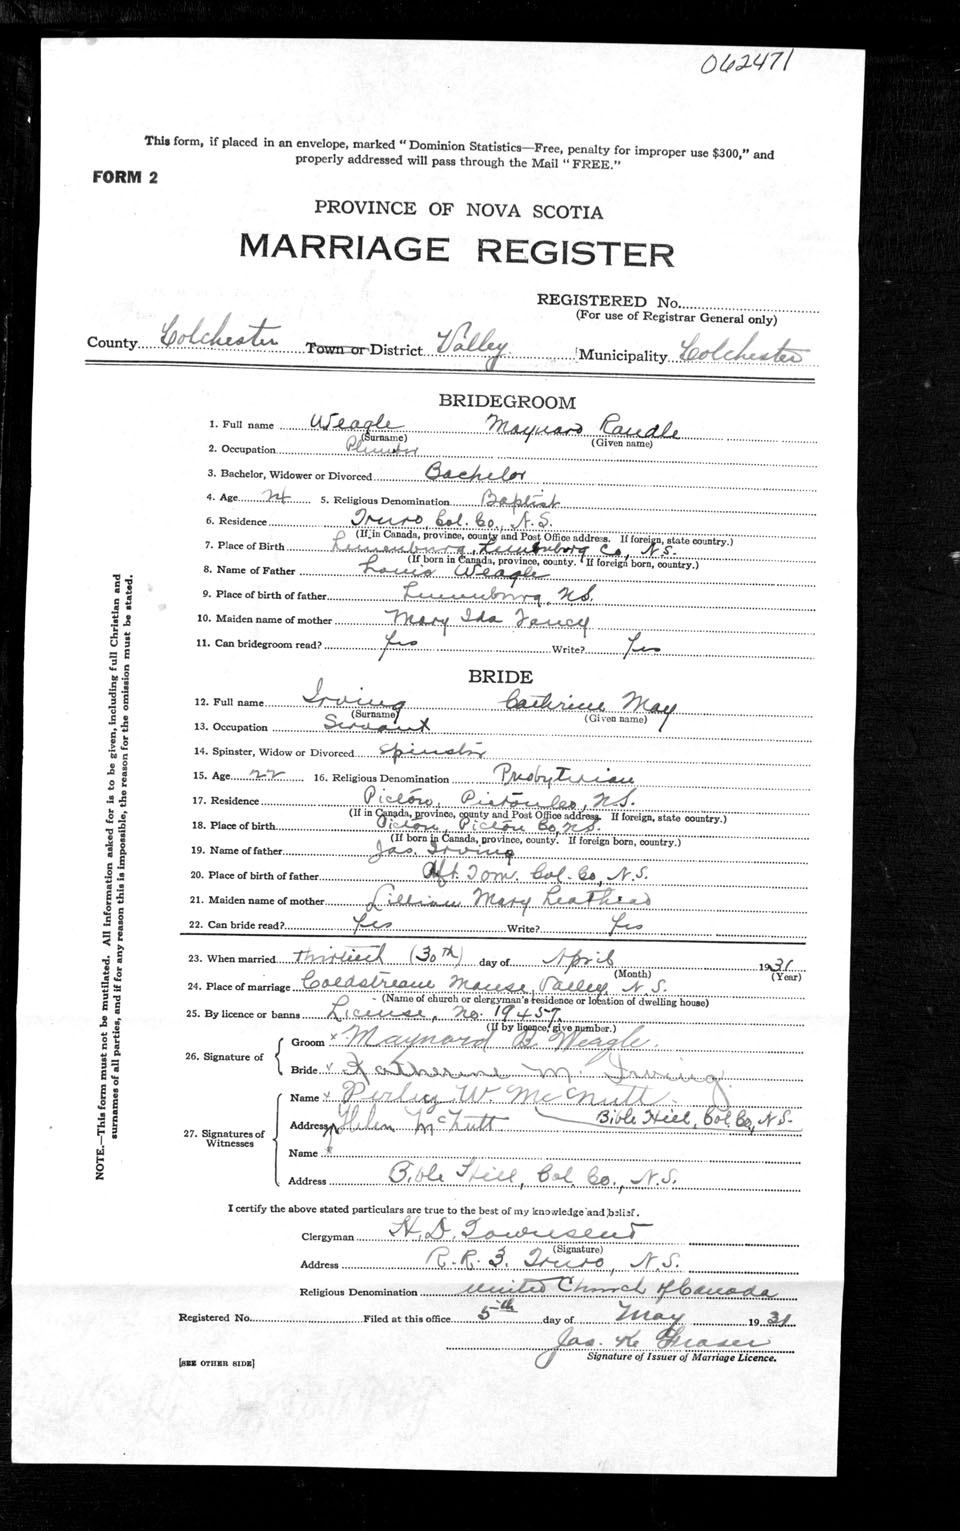 062471
This form, if placed in an envelope, marked "Dominion Statistics—Free, penalty for improper use $300," and
properly addressed will pass through the Mail "FREE."
FORM 2
PROVINCE OF NOVA SCOTIA
MARRIAGE REGISTER
REGISTERED No.
(For use of Registrar General only)
County Colchester Town or District Valley Municipality Colchester
BRIDEGROOM
1. Full name Weagle Maynard Randle
(Surname) (Given name)
2. Occupation Plumber
3. Bachelor, Widower or Divorced Bachelor
4. Age 24 5. Religious Denomination Baptist
6. Residence Truro, Col. Co., N.S.
(If in Canada, province, county and Post Office address. If foreign, state country.)
7. Place of Birth Lunenburg, Lunenburg Co., N.S.
(If born in Canada, province, county. If foreign born, country.)
8. Name of Father Louis Weagle
9. Place of birth of father Lunenburg, N.S.
10. Maiden name of mother Mary Ida
11. Can bridegroom read? Yes Write? Yes
BRIDE
12. Full name Irving Cathrine May
(Surname) (Given name)
13. Occupation Servant
14. Spinster, Widow or Divorced Spinster
15. Age 22 16. Religious Denomination Presbyterian
17. Residence Pictou, Pictou Co., N.S.
(If in Canada, province, county and Post Office address. If foreign, state country.)
18. Place of birth Pictou, Pictou Co. N.S.
(If born in Canada, province, county. If foreign born, country.)
19. Name of father Jas. Irving
20. Place of birth of father Col. Co., N.S.
21. Maiden name of mother Lillian Mary Leathead
22. Can bride read? Yes Write? Yes
23. When married thirtieth (30th) day of April 1931
(Month) (Year)
24. Place of marriage Coldstream Manse, Valley, N.S.
(Name of church or clergyman's residence or location of dwelling house)
25. By licence or banns License, no. 19457
(If by licence, give number.)
26. Signature of
Groom x Maynard R. Weagle.
Bride x Katherine M. Irving
27. Signatures of Witnesses
Name x Perley W. McNutt
Address Helen McNutt Bible Hill, Col. Co., N.S.
Name x
Address Bible Hill, Col. Co., N.S.
I certify the above stated particulars are true to the best of my knowledge and belief.
Clergyman H. D. Townsend
(Signature)
Address R.R. 3, Truro, N.S.
Religious Denomination United Church of Canada
Registered No. Filed at this office 5th day of May 1931
Jas. K. Fraser
Signature of Issuer of Marriage Licence.
[SEE OTHER SIDE]
NOTE.—This form must not be mutilated. All information asked for is to be given, including full Christian and
surnames of all parties, and if for any reason this is impossible, the reason for the omission must be stated.